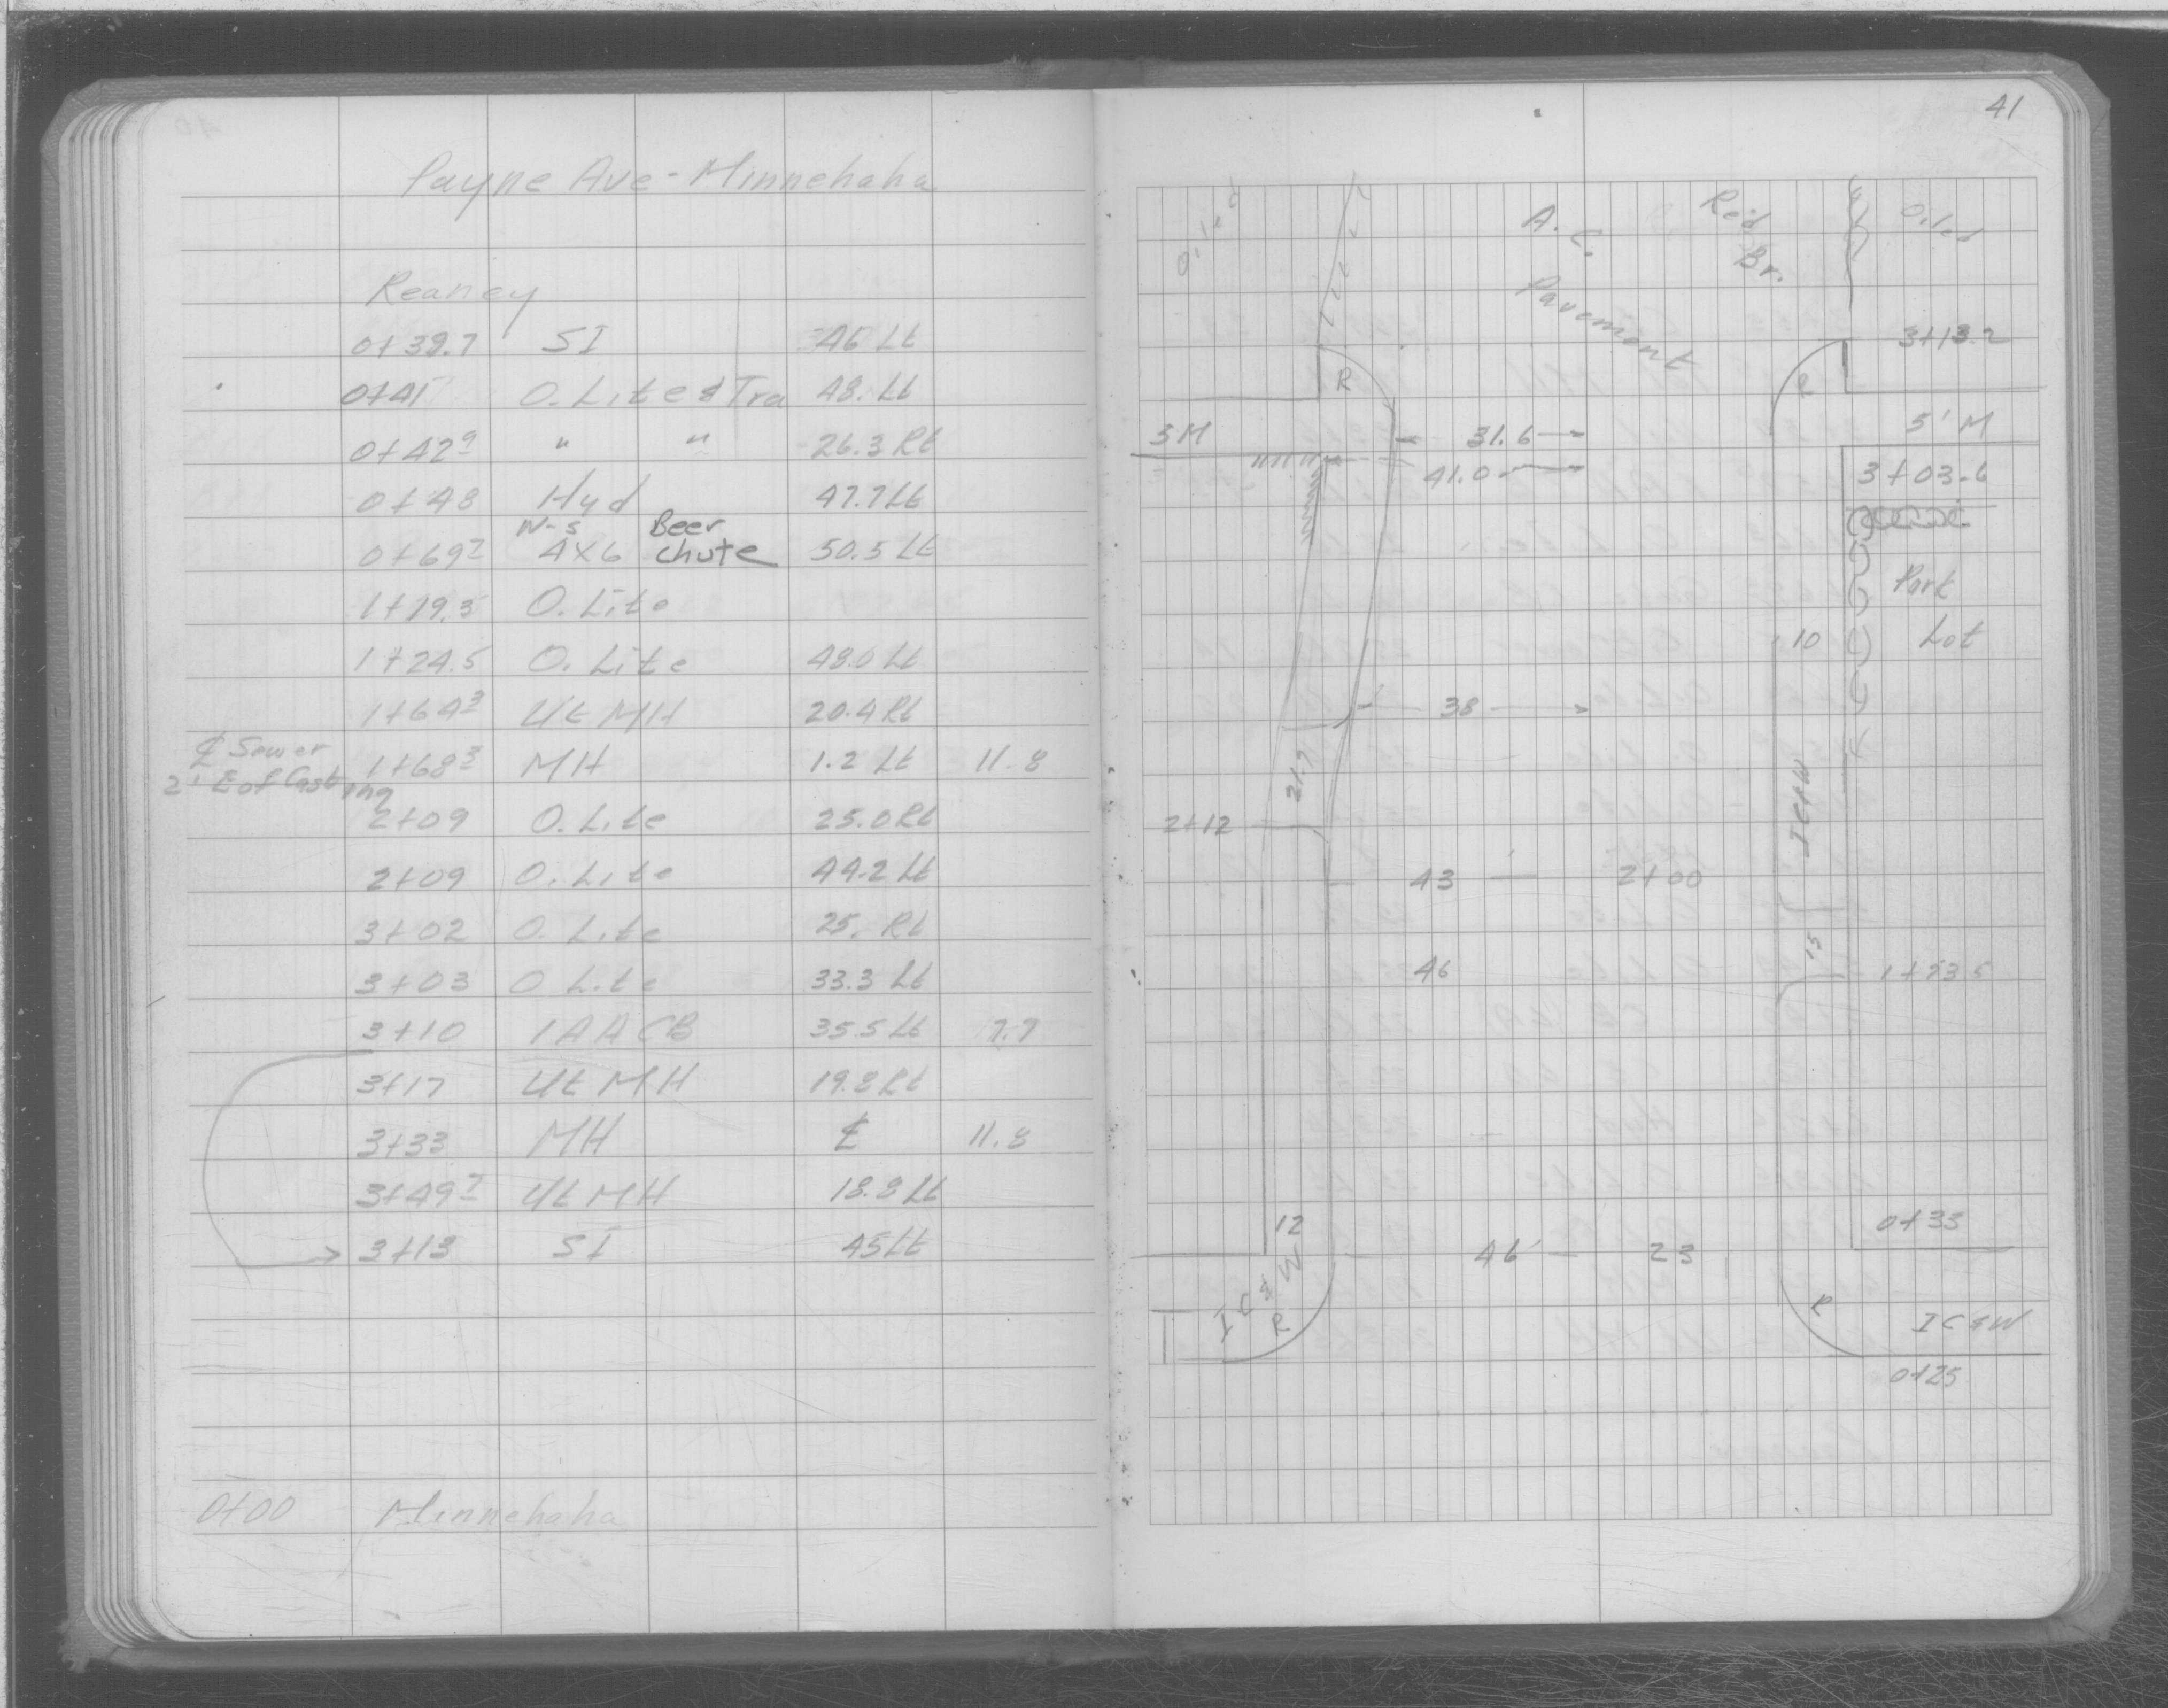 Payne Ave - Minnehaha
Reaney
0+39.7 SI 46 Lt
0+41 O. Lite & Tra 48. Lt
0+42⁹ " " 26.3 Rt
0+48 Hyd 47.7 Lt
N-S Beer
0+69⁷ 4x6 chute 50.5 Lt
1+19.5 O. Lite
1+24.5 O. Lite 48.0 Lt
1+64³ Ut MH 20.4 Rt
℄ Sewer
2' E of Casting
1+68³ MH 1.2 Lt 11.8
2+09 O. Lite 25.0 Rt
2+09 O. Lite 44.2 Lt
3+02 O. Lite 25. Rt
3+03 O Lite 33.3 Lt
3+10 1AA CB 35.5 Lt 7.7
3+17 Ut MH 19.8 Rt
3+33 MH ℄ 11.8
3+49⁷ Ut MH 18.8 Lt
3+13 SI 45 Lt
0+00 Minnehaha
41
Oiled A. C. Pavement Reid Br. Oiled
R R 3+13.2
3M 31.6 5' M
41.0 3+03.6
Park
10 Lot
38
21.7
IC&W
2+12
43 2+00
15
46 1+93.5
12 0+33
46 23
IC&W
R R IC&W
0+25